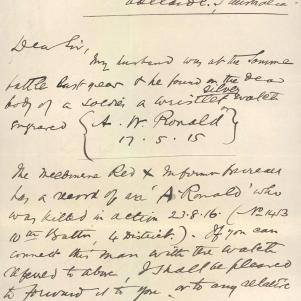 Adelaide, S Australia.
Dear Sir,
My husband was at the Somme
battle last year & he found on the dead
body of a soldier a silver wristlet watch
engraved { A. W. Ronald
17. 5. 15 }
The Melbourne Red X Information Bureau
has a record of one 'A. Ronald' who
was killed in action 23.8.16. (No 1453
10th Battn, 4 District). If you can
connect this man with the watch
referred to above, I shall be pleased
to forward it to you or to any relative